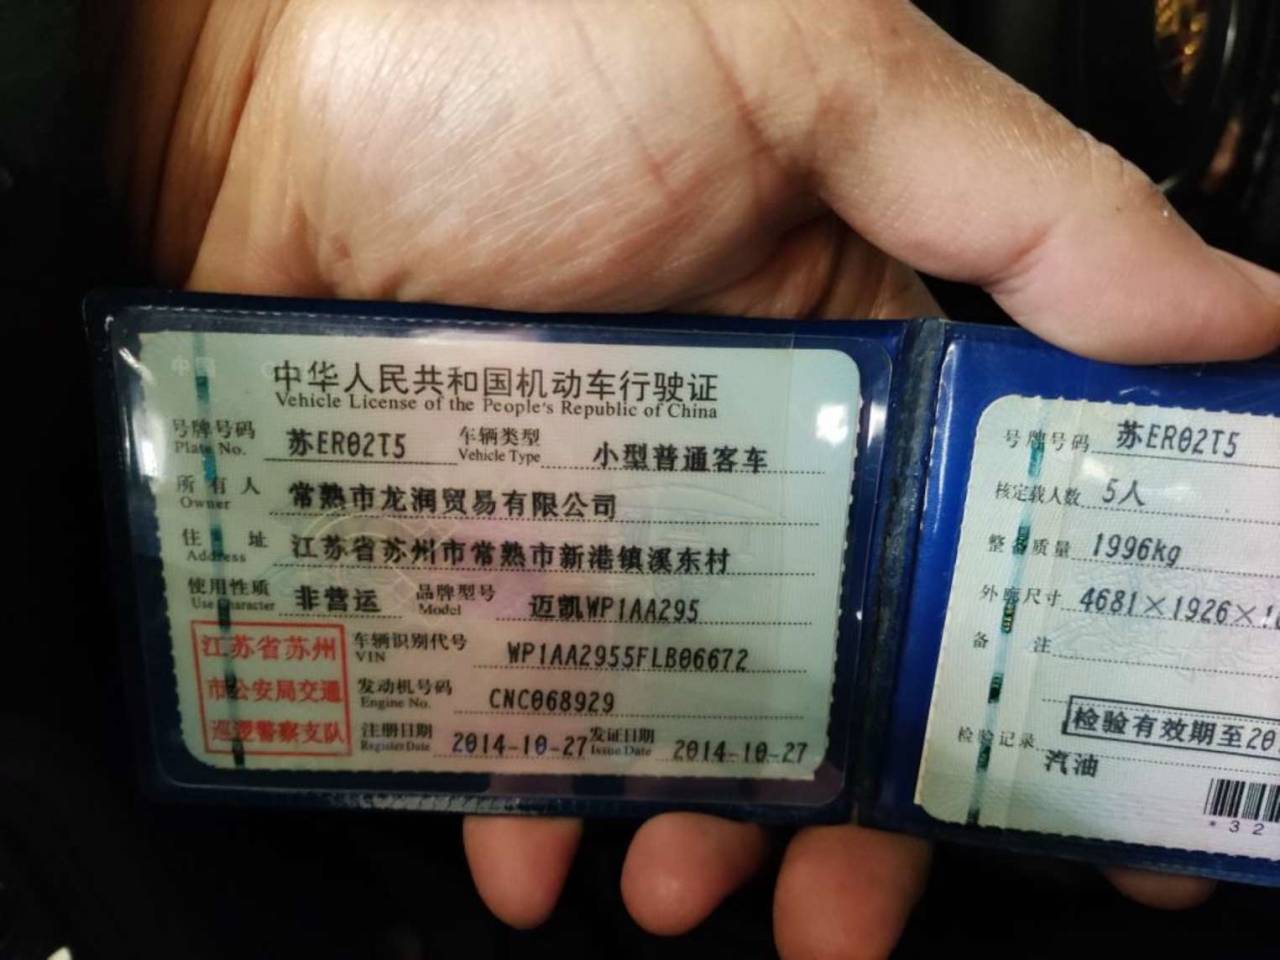 中华人民共和国机动车行驶证
Vehicle License of the People's Republic of China
号牌号码 苏ER02T5 车辆类型 小型普通客车
Plate No. Vehicle Type
所有人 常熟市龙润贸易有限公司
Owner
住址 江苏省苏州市常熟市新港镇溪东村
Address
使用性质 非营运 品牌型号 迈凯WP1AA295
Use Character Model
江苏省苏州
市公安局交通
巡逻警察支队
车辆识别代号 WP1AA2955FLB06672
VIN
发动机号码 CNC068929
Engine No.
注册日期 2014-10-27 发证日期 2014-10-27
Register Date Issue Date
号牌号码 苏ER02T5
核定载人数 5人
整备质量 1996kg
外廓尺寸 4681×1926×1
备注
检验有效期至20
检验记录
汽油
*32